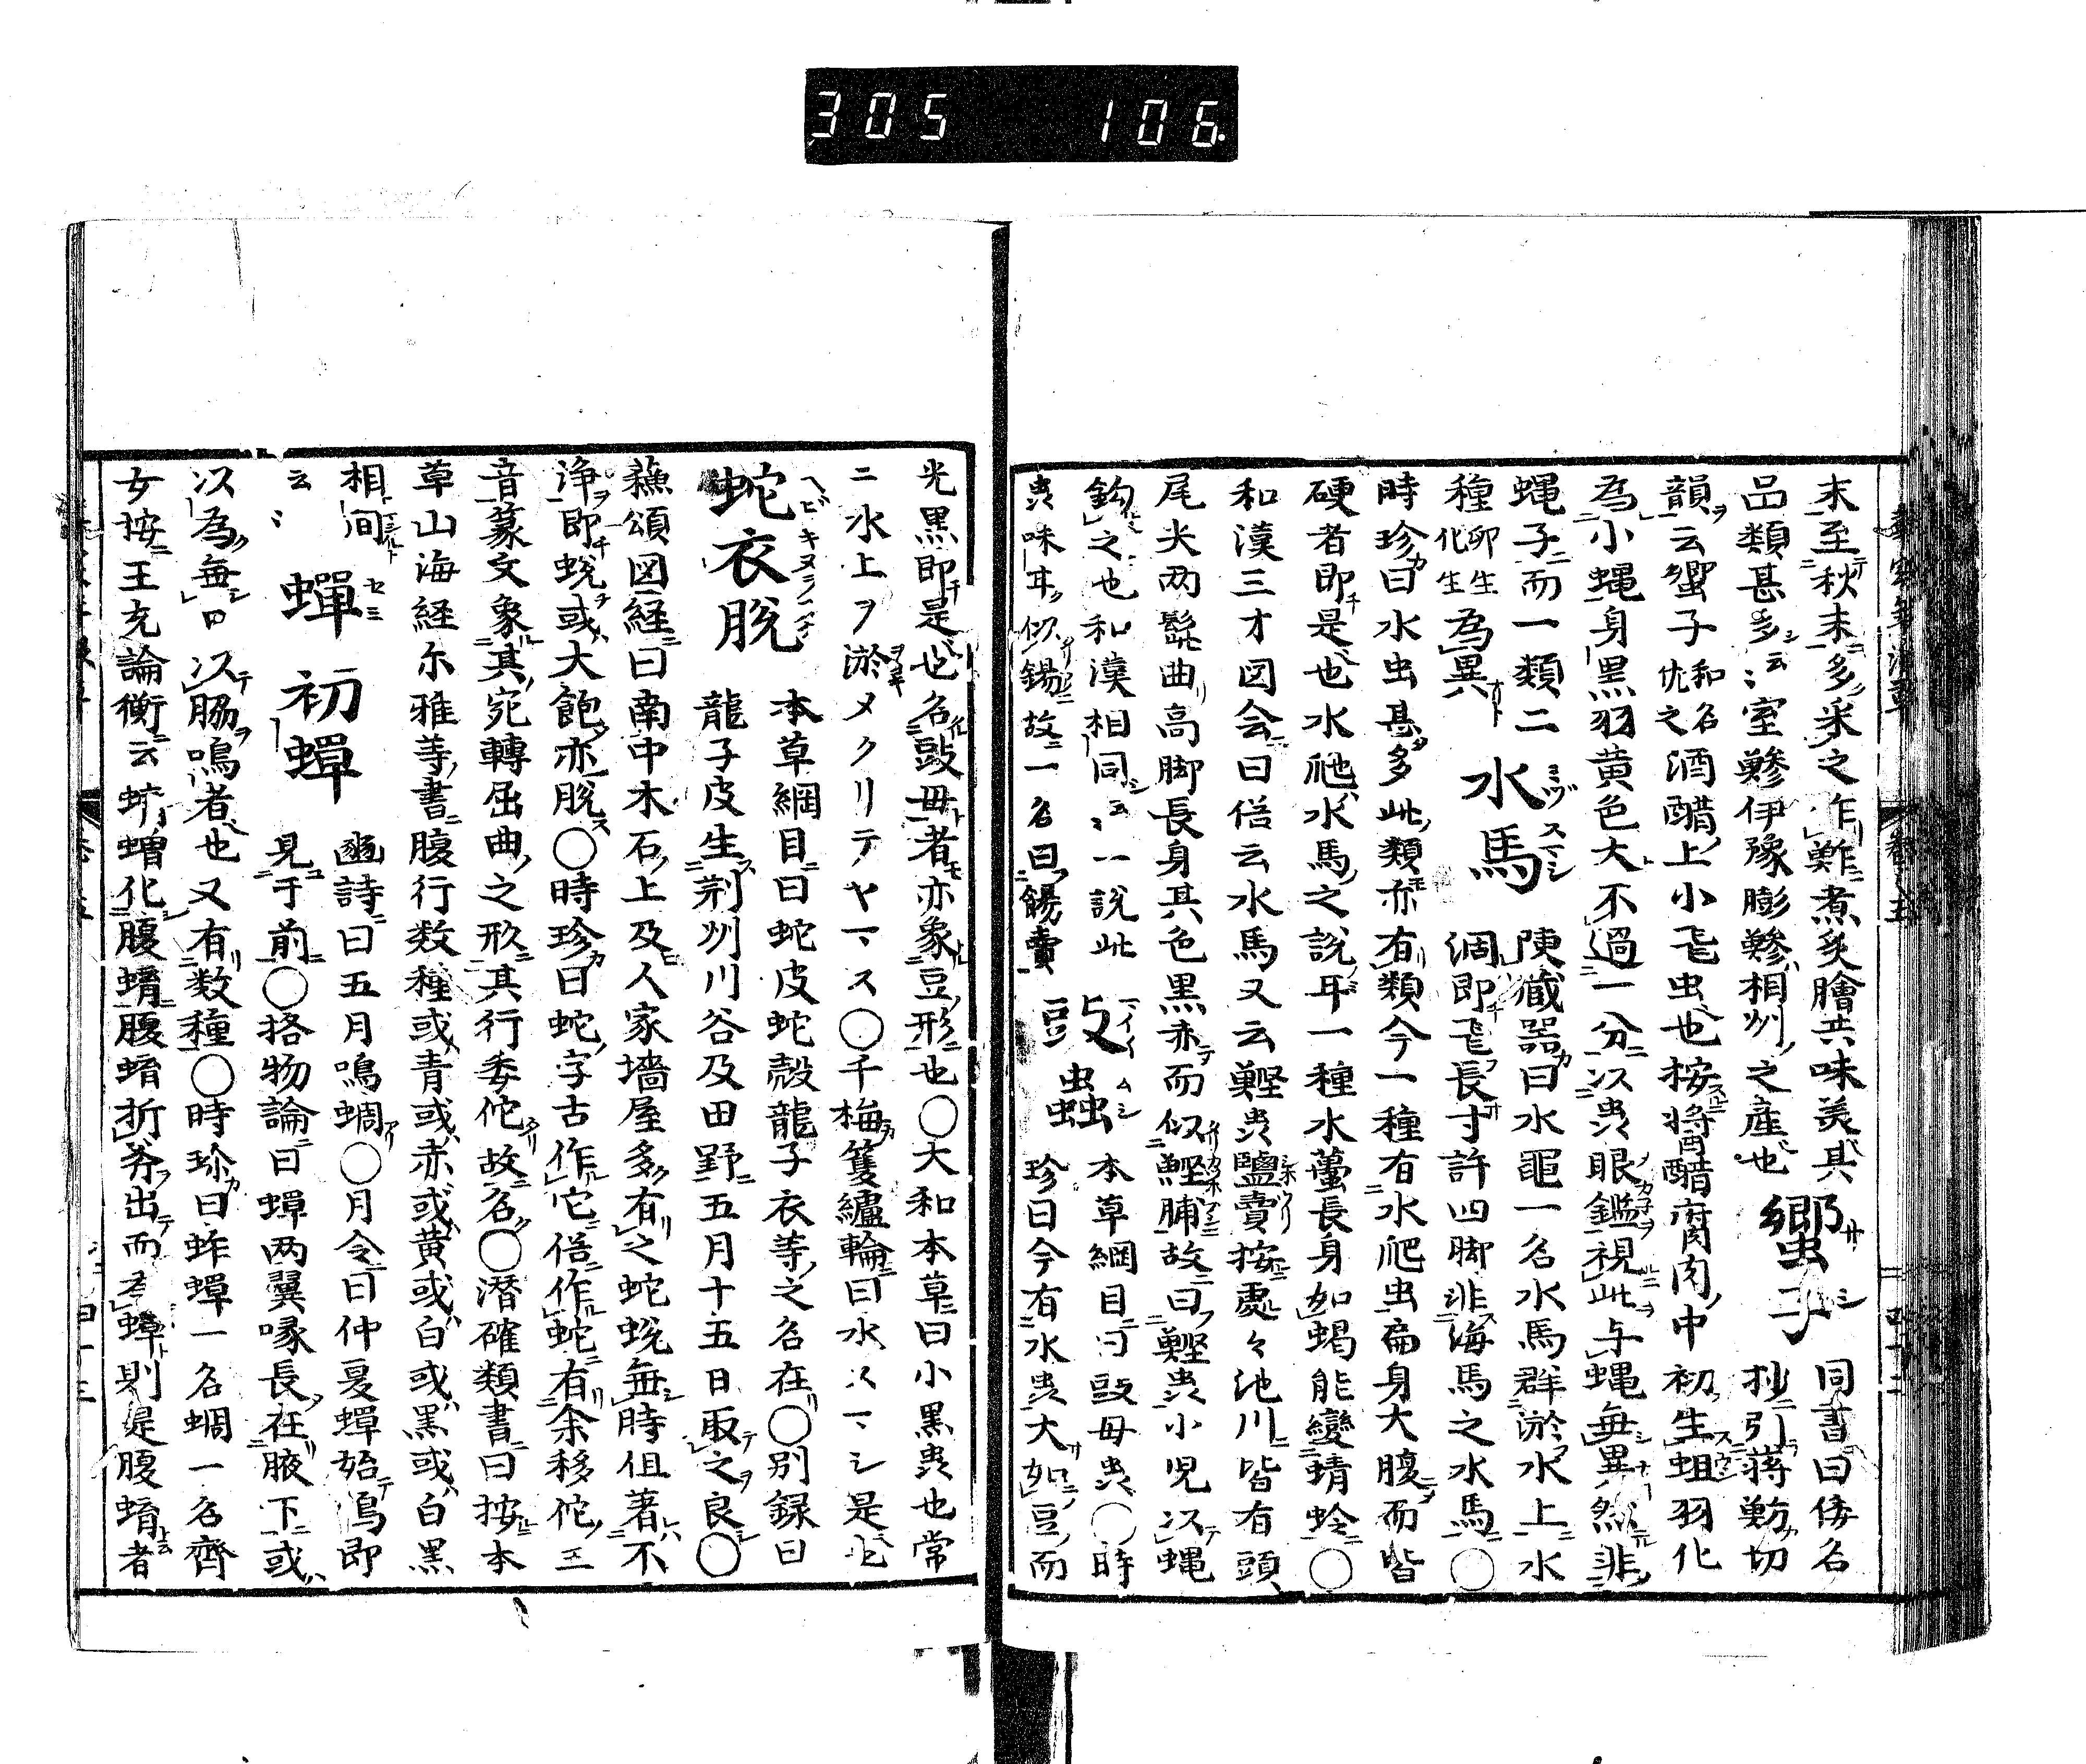 305 106.
末至秋末多采之作鮓煮炙膾共味美其
品類甚多云云室鰺伊豫膨鰺相州之産也
蠁子
同書曰倭名
抄引蒋魴切
韻云蠁子和名佐之酒醋上小飛虫也按将醋腐肉中
初生蛆羽化
為小蝿身黒羽黄色大不過一分以虫眼鑑視此与蝿無異然非
蝿子而一類二
種卵生化生為異
水馬
陳藏器曰水黽一名水馬群游水上水
涸即飛長寸許四脚非海馬之水馬〇
時珍曰水虫甚多此類亦有類今一種有水爬虫扁身大腹而皆
硬者即是也水爬水馬之説耳一種水蠆長身如蝎能變蜻蛉〇
和漢三才図会曰俗云水馬又云鰹虫鹽賣按處々池川皆有頭
尾尖两髭曲高脚長身其色黒赤而似鰹脯故曰鰹虫小児以蝿
鈎之也和漢相同云云一説此
虫味耳似錫故一名曰餳賣
豉蟲
本草綱目曰豉母虫〇時
珍曰今有水虫大如豆而
光黒即是也名豉毋者亦象豆形也〇大和本草曰小黒虫也常
ニ水上ヲ游メクリテヤマス〇千梅篗纑輪曰水スマシ是也
蛇衣脱
ヘビキヌヲヌグ
本草綱目曰蛇皮蛇殻龍子衣等之名在〇别録曰
龍子皮生荆州川谷及田野五月十五日取之良〇
蘓頌図経曰南中木石上及人家墻屋多有之蛇蛻無時但著不
浄即蛻或大飽亦脱〇時珍曰蛇字古作它俗作蛇有余移佗三
音篆文象其宛轉屈曲之形其行委佗故名〇潜確類書曰按本
草山海経尓雅等書腹行数種或青或赤或黄或白或黒或白黒
相間
云々
蟬
セミ
初蟬
豳詩曰五月鳴蜩〇月令曰仲夏蟬始鳴即
見于前〇格物論曰蟬两翼喙長在腋下或
以為無口以脇鳴者也又有数種〇時珍曰蚱蟬一名蜩一名齊
女按王充論衡云蛴螬化腹蜟腹蜟折背出而為蟬則是腹蜟者